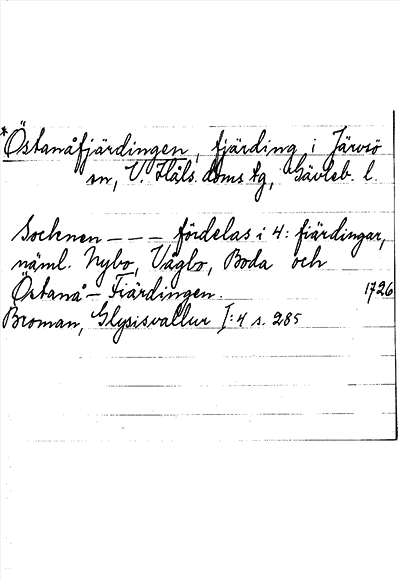 *Östanåfjärdingen, fjärding i Järvsö
sn, V. Häls. doms tg, Gävleb. l.
Socknen - - - fördelas i 4: fiärdingar,
näml. Nybo, Vägbo, Boda och
Östanå-Fiärdingen. 1726
Broman, Glysisvallur I:4 s. 285